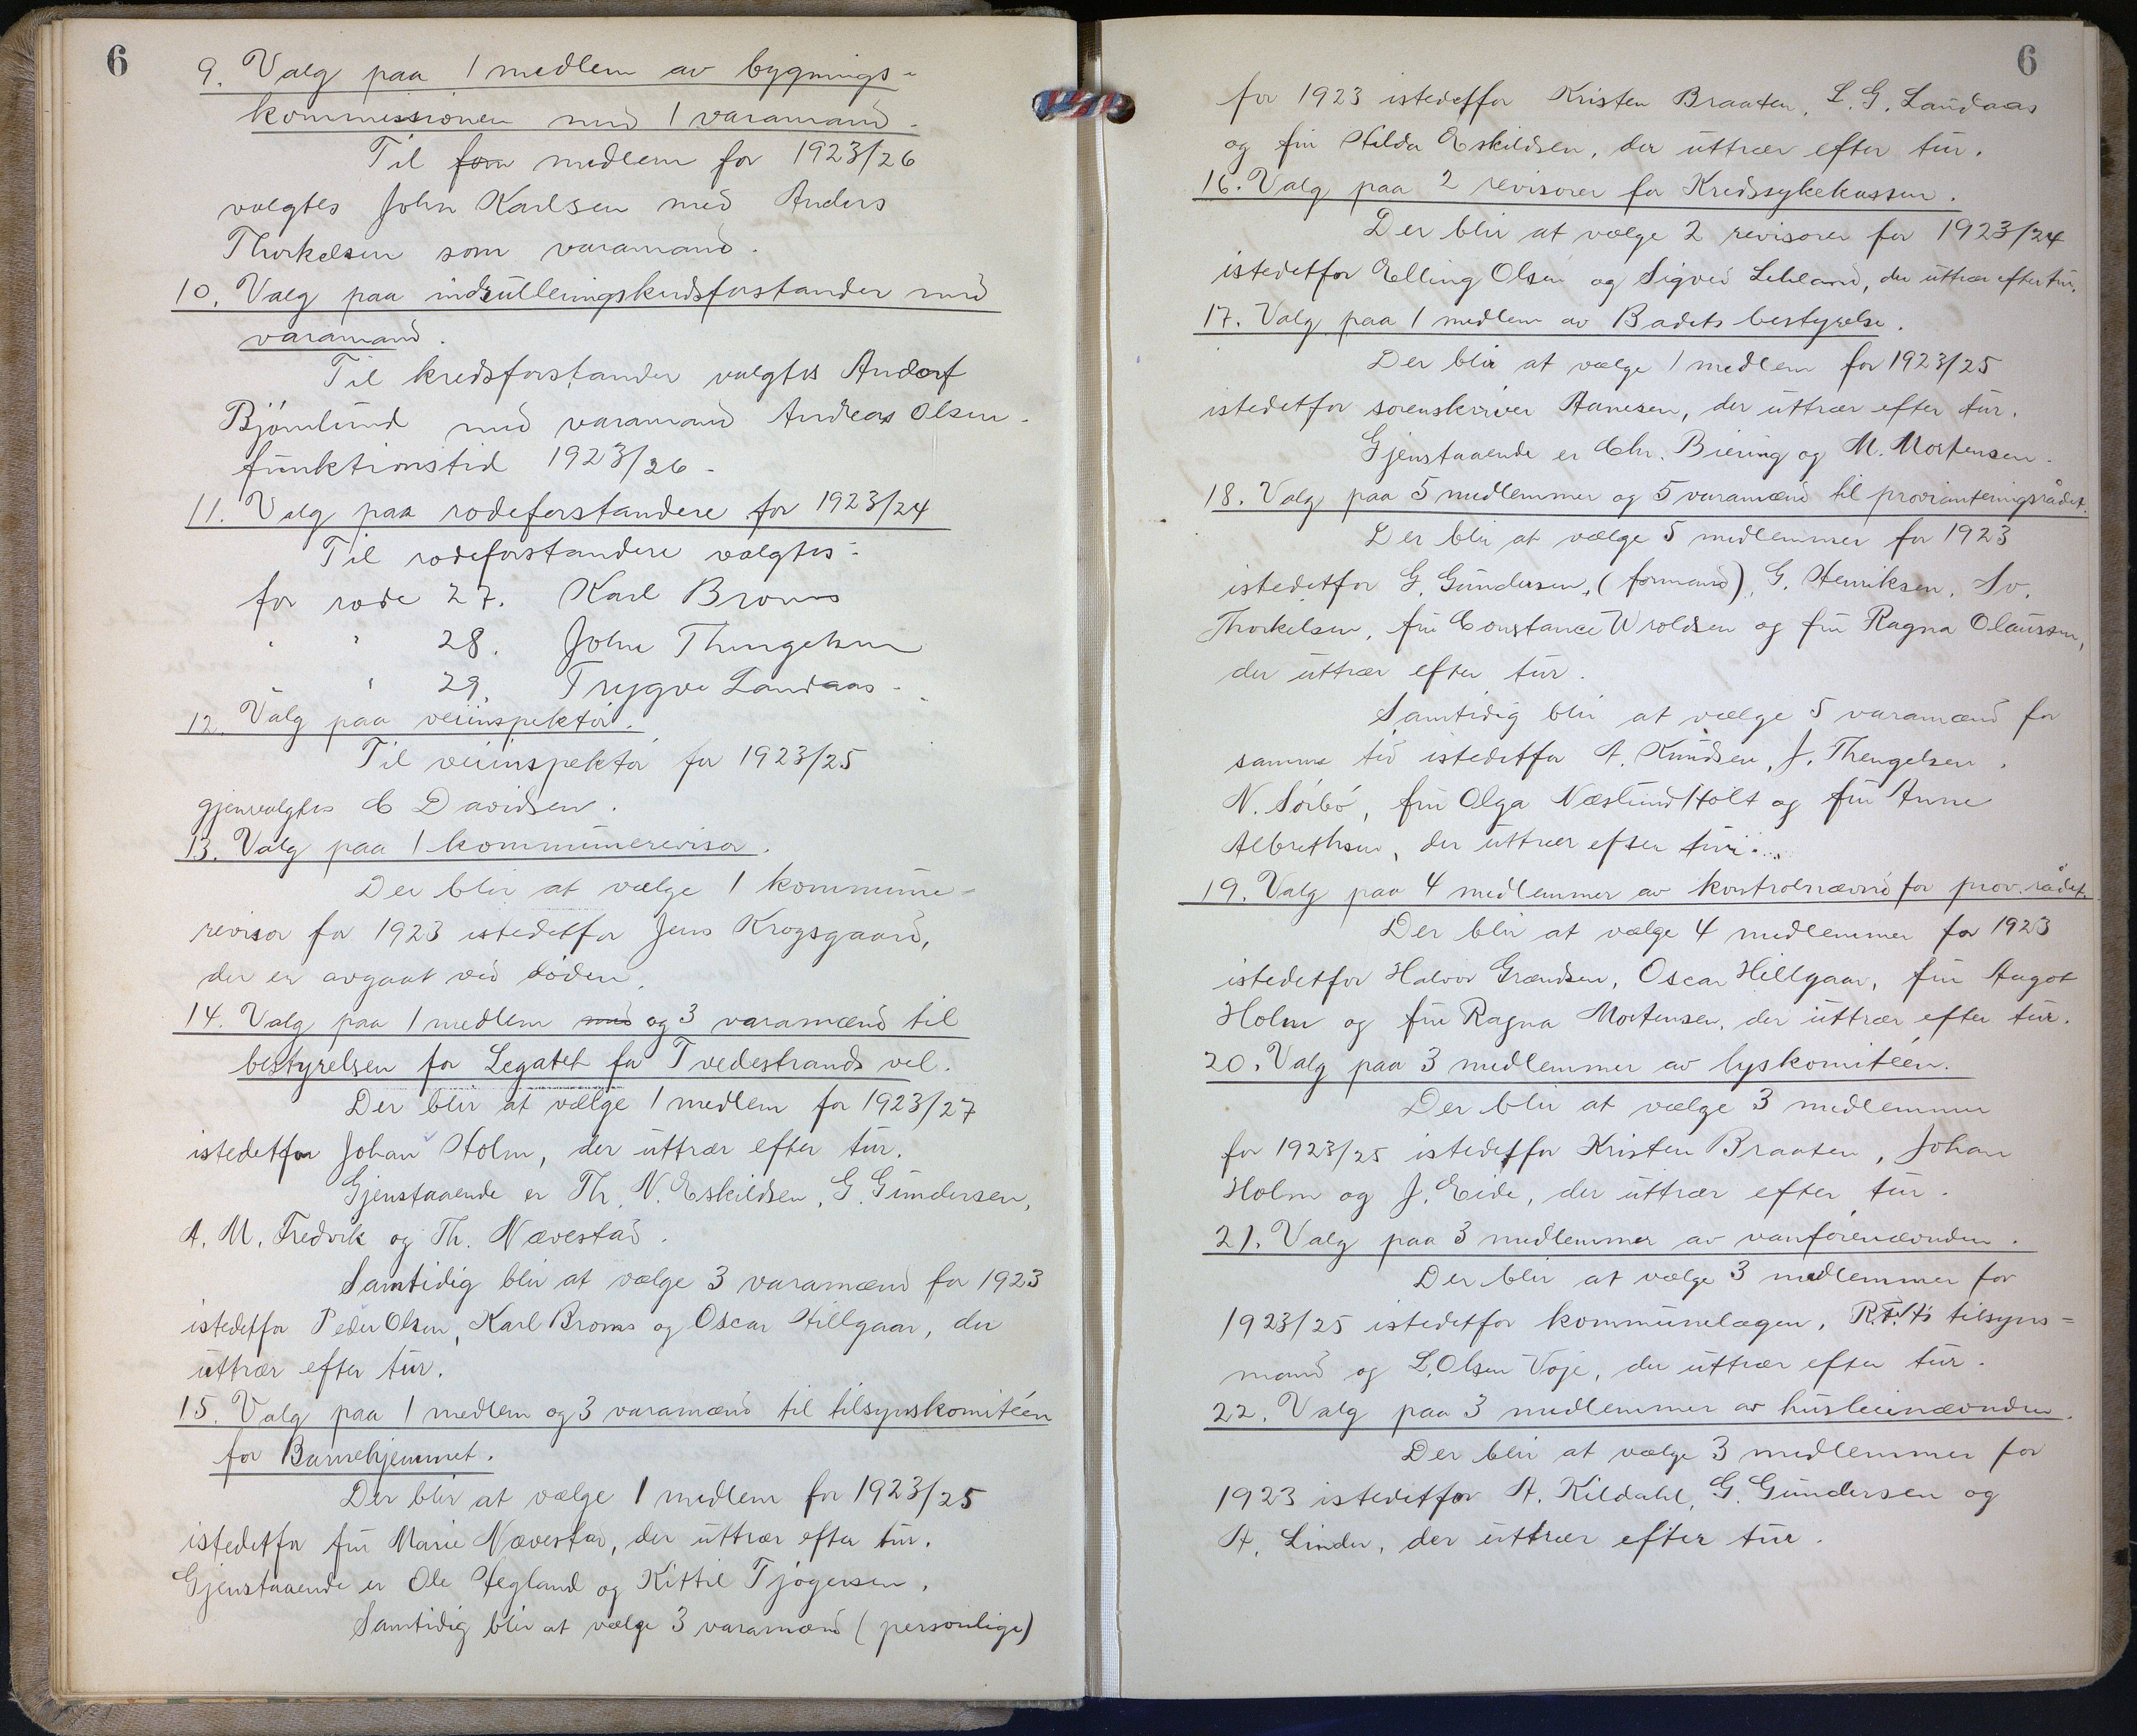 6
9. Valg paa 1 medlem av bygnings-
kommissionen med 1 varamand.
Til form medlem for 1923/26
valgtes John Karlsen med Anders
Thorkelsen som varamand.
10. Valg paa indrulleringskredsforstander med
varamand.
Til kredsforstander valgtes Andorf
Bjørnlund med varamand Andreas Olsen.
funktionstid 1923/26.
11. Valg paa rodeforstandere for 1923/24
Til rodeforstandere valgtes:
for rode 27. Karl Broms
" " 28. John Thengelsen
" 29. Trygve Landaas.
12. Valg paa veiinspektør.
Til veiinspektør for 1923/25
gjenvalgtes C Davidsen.
13. Valg paa 1 kommunerevisor.
Der blir at vælge 1 kommune-
revisor for 1923 istedetfor Jens Krogsgaard,
der er avgaat ved døden.
14. Valg paa 1 medlem med og 3 varamænd til
bestyrelsen for Legatet for Tvedestrands vel.
Der blir at vælge 1 medlem for 1923/27
istedetfor Johan Holm, der uttrær efter tur.
Gjenstaaende er Th. N. Eskildsen, G. Gundersen,
A. M. Fredvik og Th. Nævestad.
Samtidig blir at vælge 3 varamænd for 1923
istedetfor Peder Olsen, Karl Broms og Oscar Hillgaar, der
uttrær efter tur.
15. Valg paa 1 medlem og 3 varamænd til tilsynskomitéen
for Barnehjemmet.
Der blir at vælge 1 medlem for 1923/25
istedetfor fru Marie Nævestad, der uttrær efter tur.
Gjenstaaende er Ole Hegland og Kittil Tjøgersen.
Samtidig blir at vælge 3 varamænd (personlige)
6
for 1923 istedetfor Kristen Braaten, L. G. Landaas
og fru Hilda Eskildsen, der uttrær efter tur.
16. Valg paa 2 revisorer for Kredssykekassen.
Der blir at vælge 2 revisorer for 1923/24
istedetfor Elling Olsen og Sigved Lilleland, der uttrær efter tur.
17. Valg paa 1 medlem av Badets bestyrelse.
Der blir at vælge 1 medlem for 1923/25
istedetfor sorenskriver Aanesen, der uttrær efter tur.
Gjenstaaende er Chr. Biering og M. Mortensen.
18. Valg paa 5 medlemmer og 5 varamænd til provianteringsrådet.
Der blir at vælge 5 medlemmer for 1923
istedetfor G. Gundersen, (formand), G. Henriksen, Sv.
Thorkelsen, fru Constance Wroldsen og fru Ragna Olaussen,
der uttrær efter tur.
Samtidig blir at vælge 5 varamænd for
samme tid istedetfor A. Knudsen, J. Thengelsen,
N. Sørbø, fru Olga Næslund Holt og fru Anne
Albrethsen, der uttrær efter tur.
19. Valg paa 4 medlemmer av kontrolnævnd for prov.rådet.
Der blir at vælge 4 medlemmer for 1923
istedetfor Halvor Grændsen, Oscar Hillgaar, fru Aagot
Holm og fru Ragna Mortensen, der uttrær efter tur.
20. Valg paa 3 medlemmer av lyskomitéen.
Der blir at vælge 3 medlemmer
for 1923/25 istedetfor Kristen Braaten, Johan
Holm og J. Eide, der uttrær efter tur.
21. Valg paa 3 medlemmer av vanførenævnden.
Der blir at vælge 3 medlemmer for
1923/25 istedetfor kommunelægen, R.T.V's tilsyns-
mand og L. Olsen Voje, der uttrær efter tur.
22. Valg paa 3 medlemmer av husleienævnden.
Der blir at vælge 3 medlemmer for
1923 istedetfor A. Kildahl, G. Gundersen og
A. Linder, der uttrær efter tur.